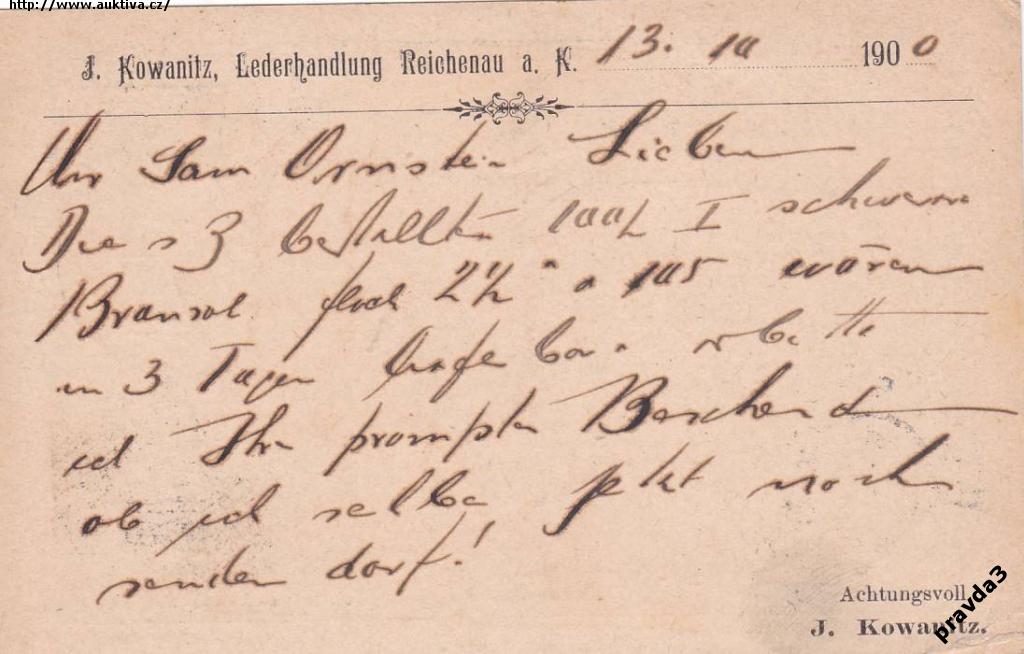 http://www.auktiva.cz/
J. Kowanitz, Lederhandlung Reichenau a. K. 13. 10 1900
Sam Ornstein Lieben
Die 3 bestellten I schwere
flach 2½ a 105 wären
in 3 Tagen lieferbar. erbitte
ich Ihre prompten Bescheid
ob ich selbe jetzt noch
senden darf!
Achtungsvoll
J. Kowanitz.
pravda3